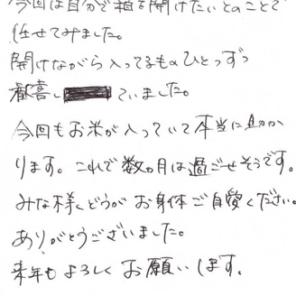 今回は自分で箱を開けたいとのことで
任せてみました。
開けながら入ってるものひとつずつ
歓喜し ていました。
今回もお米が入っていて本当に助か
ります。これで数ヵ月は過ごせそうです。
みな様、どうかお身体ご自愛ください。
ありがとうございました。
来年もよろしくお願いします。